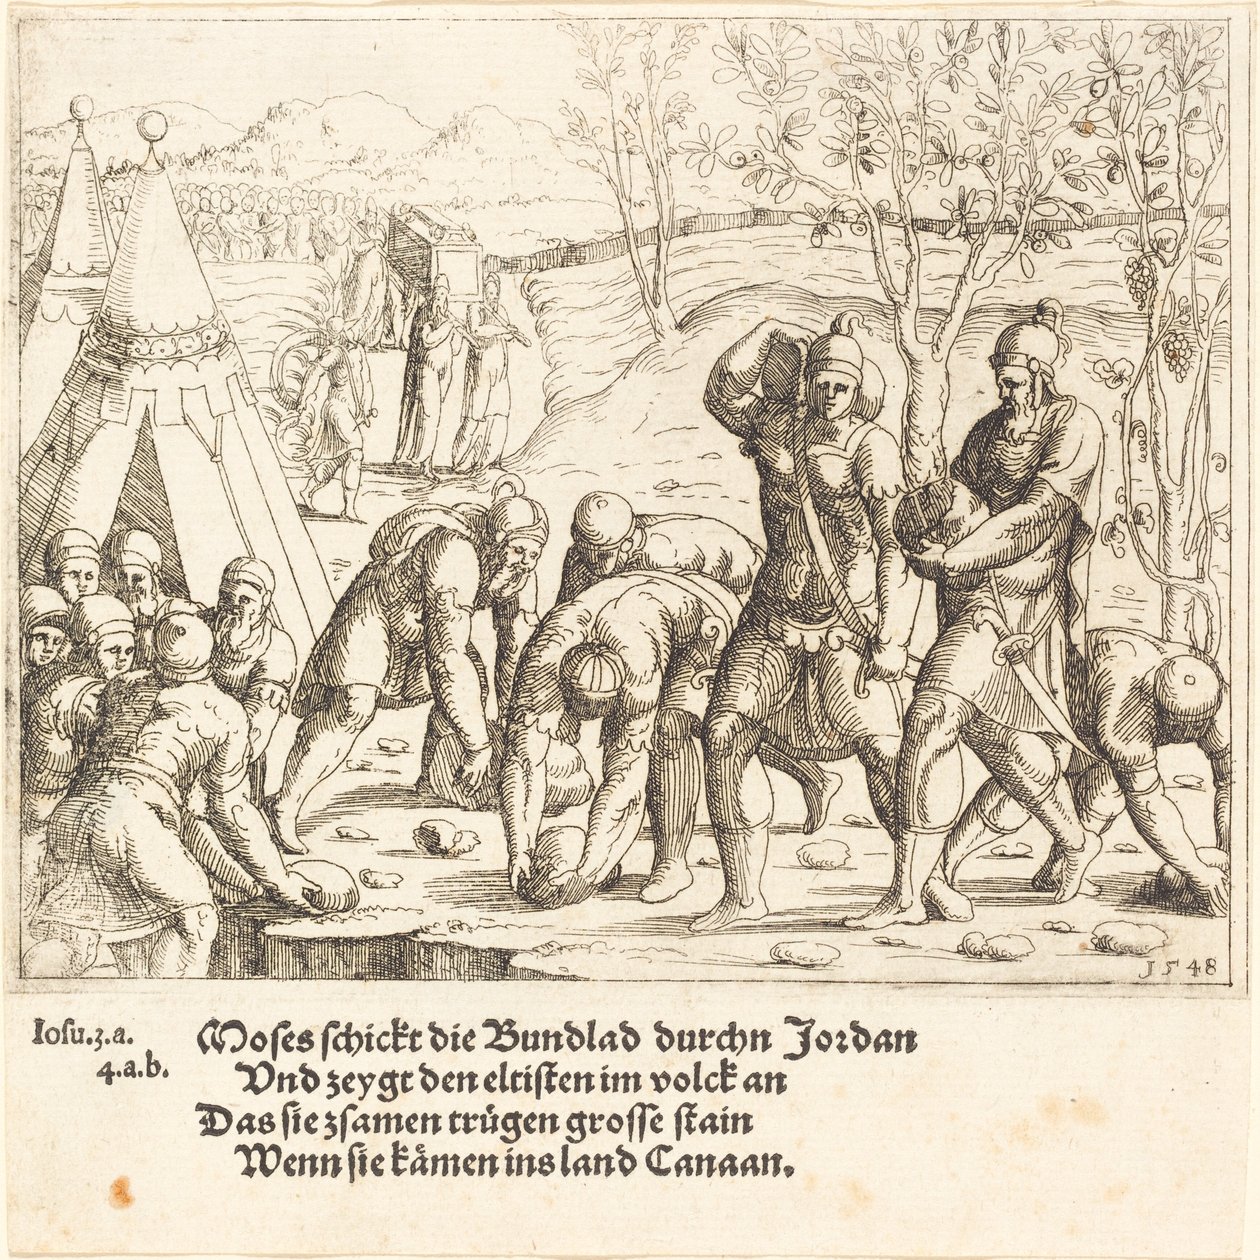 1548
Iosu.3.a.
4.a.b.
Moses schickt die Bundlad durchn Jordan
Vnd zeygt den eltisten im volck an
Das sie zsamen trügen grosse stain
Wenn sie kämen ins land Canaan.